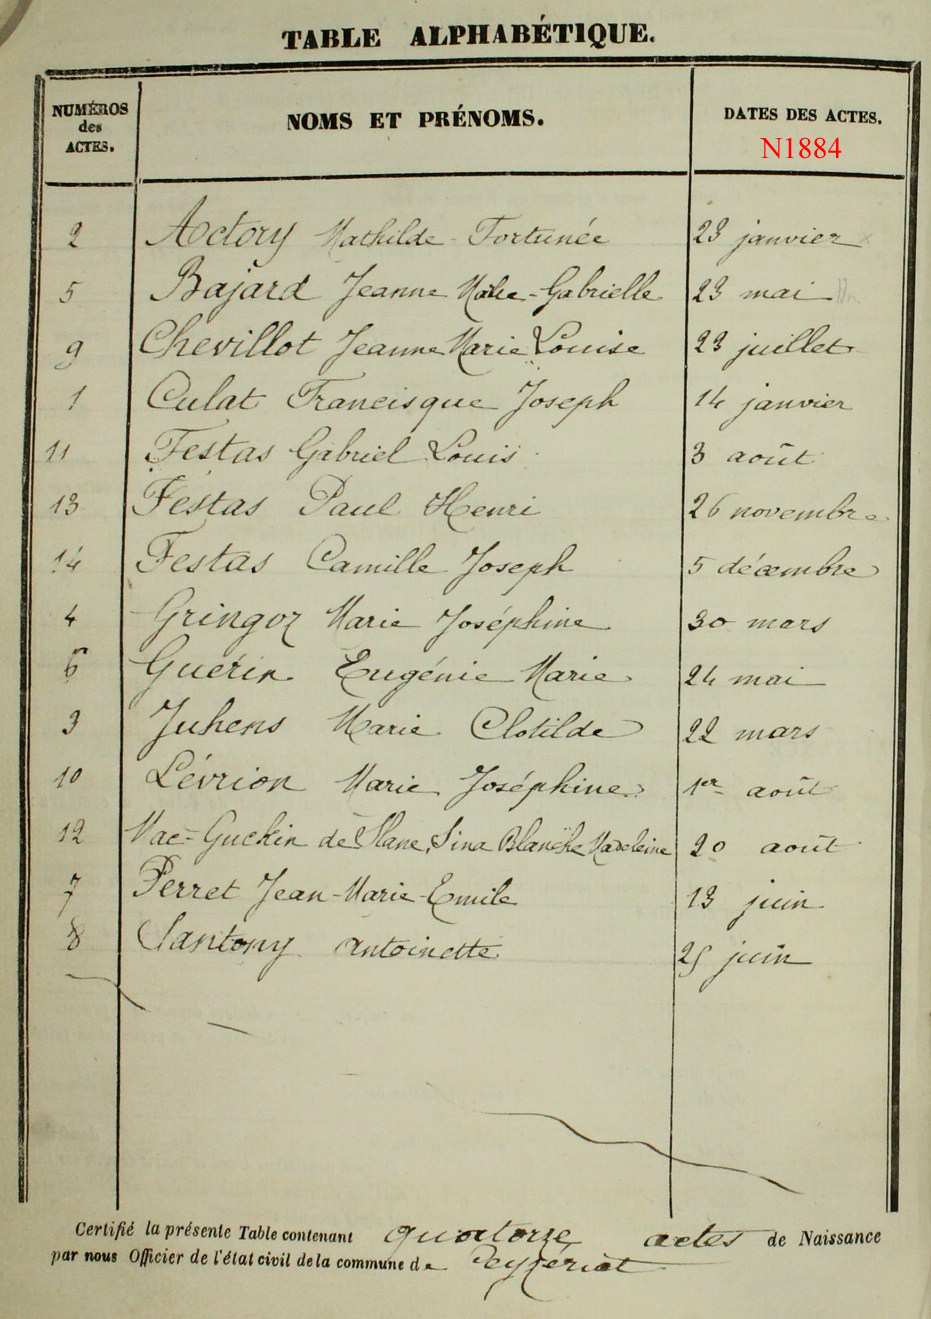 TABLE ALPHABÉTIQUE.
NUMÉROS des ACTES. NOMS ET PRÉNOMS. DATES DES ACTES.
N1884
2 Actory Mathilde-Fortunée 23 janvier
5 Bajard Jeanne Marie-Gabrielle 23 mai
9 Chevillot Jeanne Marie Louise 23 juillet
1 Culat Francisque Joseph 14 janvier
11 Festas Gabriel Louis 3 août
13 Festas Paul Henri 26 novembre
14 Festas Camille Joseph 5 décembre
4 Gringoz Marie Joséphine 30 mars
6 Guérin Eugénie Marie 24 mai
3 Juhens Marie Clotilde 22 mars
10 Lévrion Marie Joséphine 1er août
12 Mac-Guckin de Slane, Sina Blanche Madeleine 20 août
7 Perret Jean-Marie-Emile 13 juin
8 Santony Antoinette 25 juin
Certifié la présente Table contenant quatorze actes de Naissance
par nous Officier de l'état civil de la commune de Peyzériat